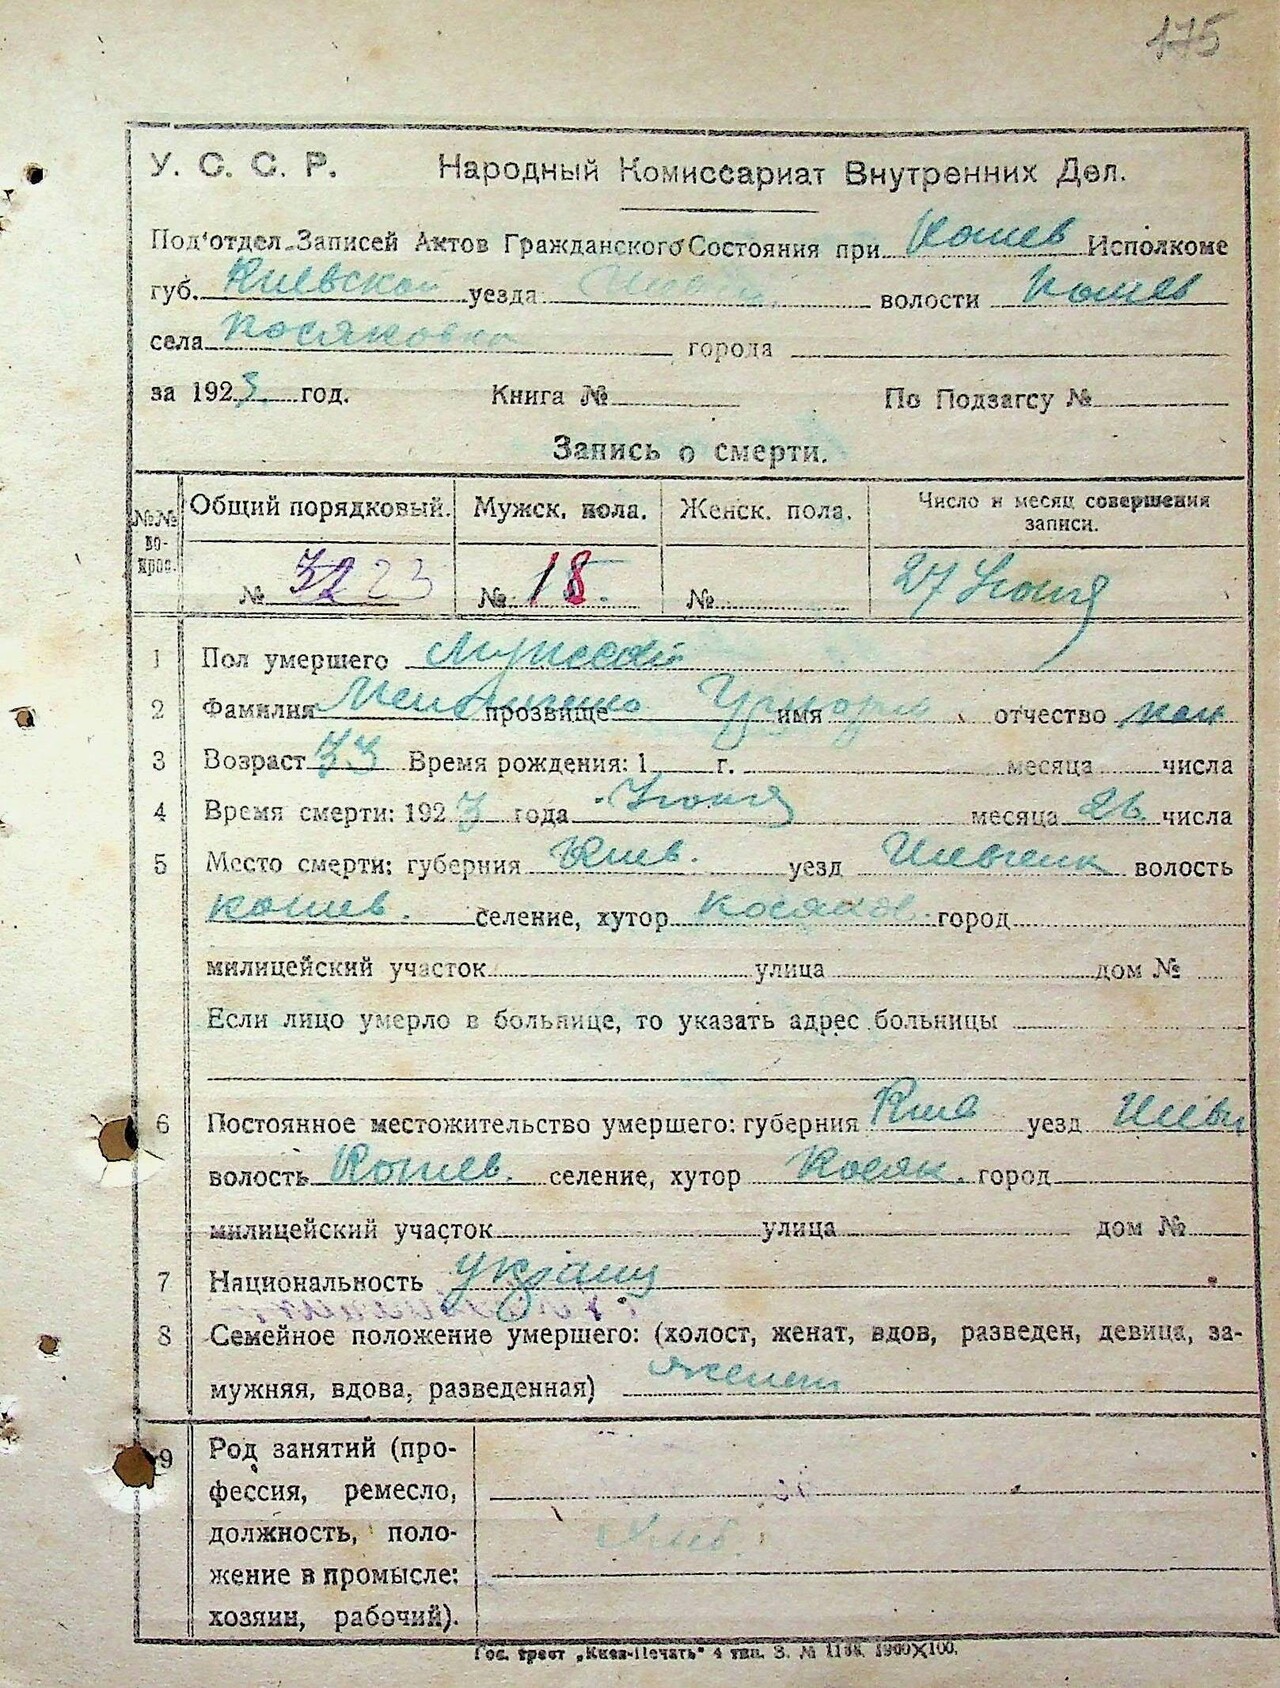 175
У. С. С. Р. Народный Комиссариат Внутренних Дел.
Под'отдел Записей Актов Гражданского Состояния при Кошев Исполкоме
губ. Киевской уезда волости Кошев
села Косяковка города
за 1923 год. Книга № По Подзагсу №
Запись о смерти.
№№ вопрос. Общий порядковый. Мужск. пола. Женск. пола. Число и месяц совершения записи.
№ 32 23 № 18. № 27 Июня
1 Пол умершего Мужской
2 Фамилия прозвище имя отчество
3 Возраст 33 Время рождения: 1 г. месяца числа
4 Время смерти: 1923 года Июня месяца 26 числа
5 Место смерти: губерния Киев. уезд Шевченк волость
Кошев. селение, хутор Косяков. город
милицейский участок улица дом №
Если лицо умерло в больнице, то указать адрес больницы
6 Постоянное местожительство умершего: губерния Киев уезд Шевч
волость Кошев. селение, хутор Косяк. город
милицейский участок улица дом №
7 Национальность украинц
8 Семейное положение умершего: (холост, женат, вдов, разведен, девица, за-
мужняя, вдова, разведенная) женат
9 Род занятий (про-
фессия, ремесло,
должность, поло-
жение в промысле:
хозяин, рабочий).
Гос. трест „Киев-Печать" 4 тип. З. № 1138. 1900×100.